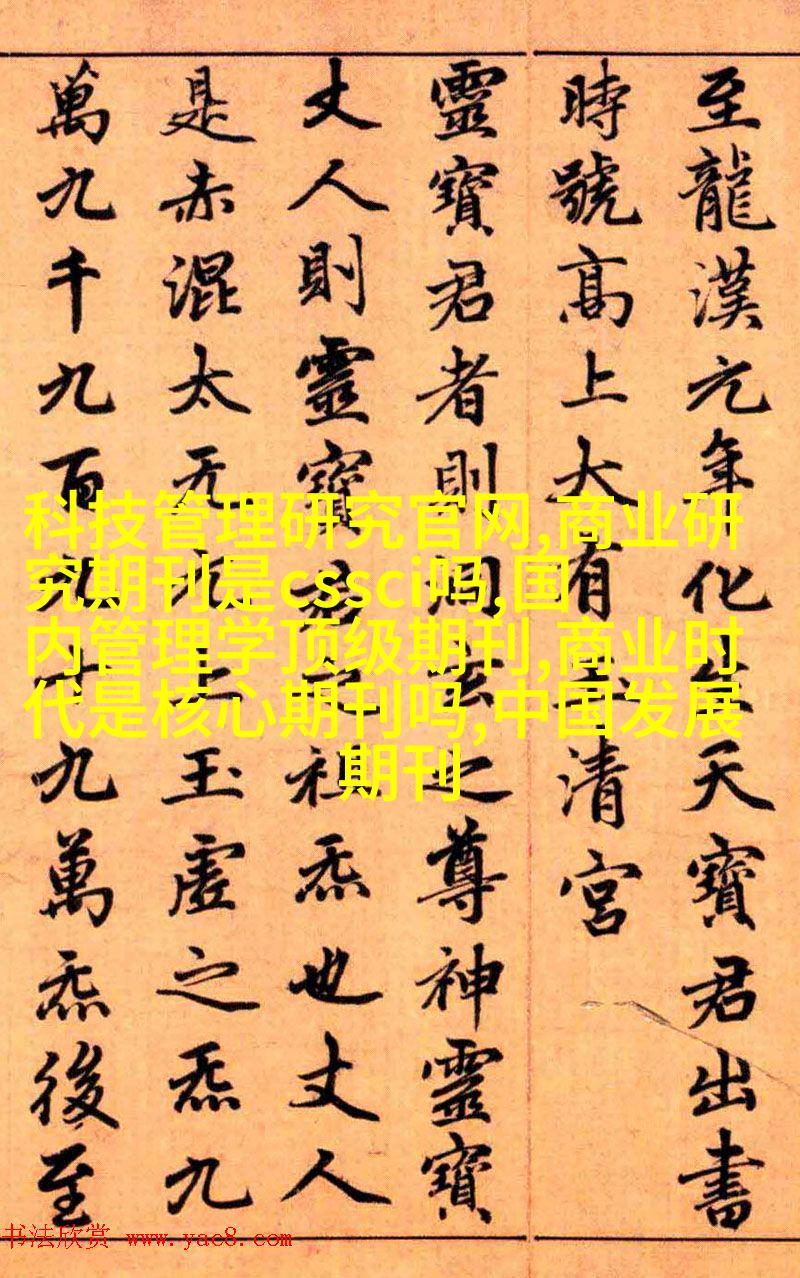 至龍漢元年化生天寶君出書
時號高上大有玉清宮
靈寶君者則洞玄之尊神靈寶
丈人則靈寶君之祖炁也丈人
是赤混太无元上玉虛之炁九
萬九千九百九十九萬炁後至
科技管理研究官网,商业研
究期刊是cssci吗,国
内管理学顶级期刊,商业时
代是核心期刊吗,中国发展
期刊
书法欣赏 www.yac8.com